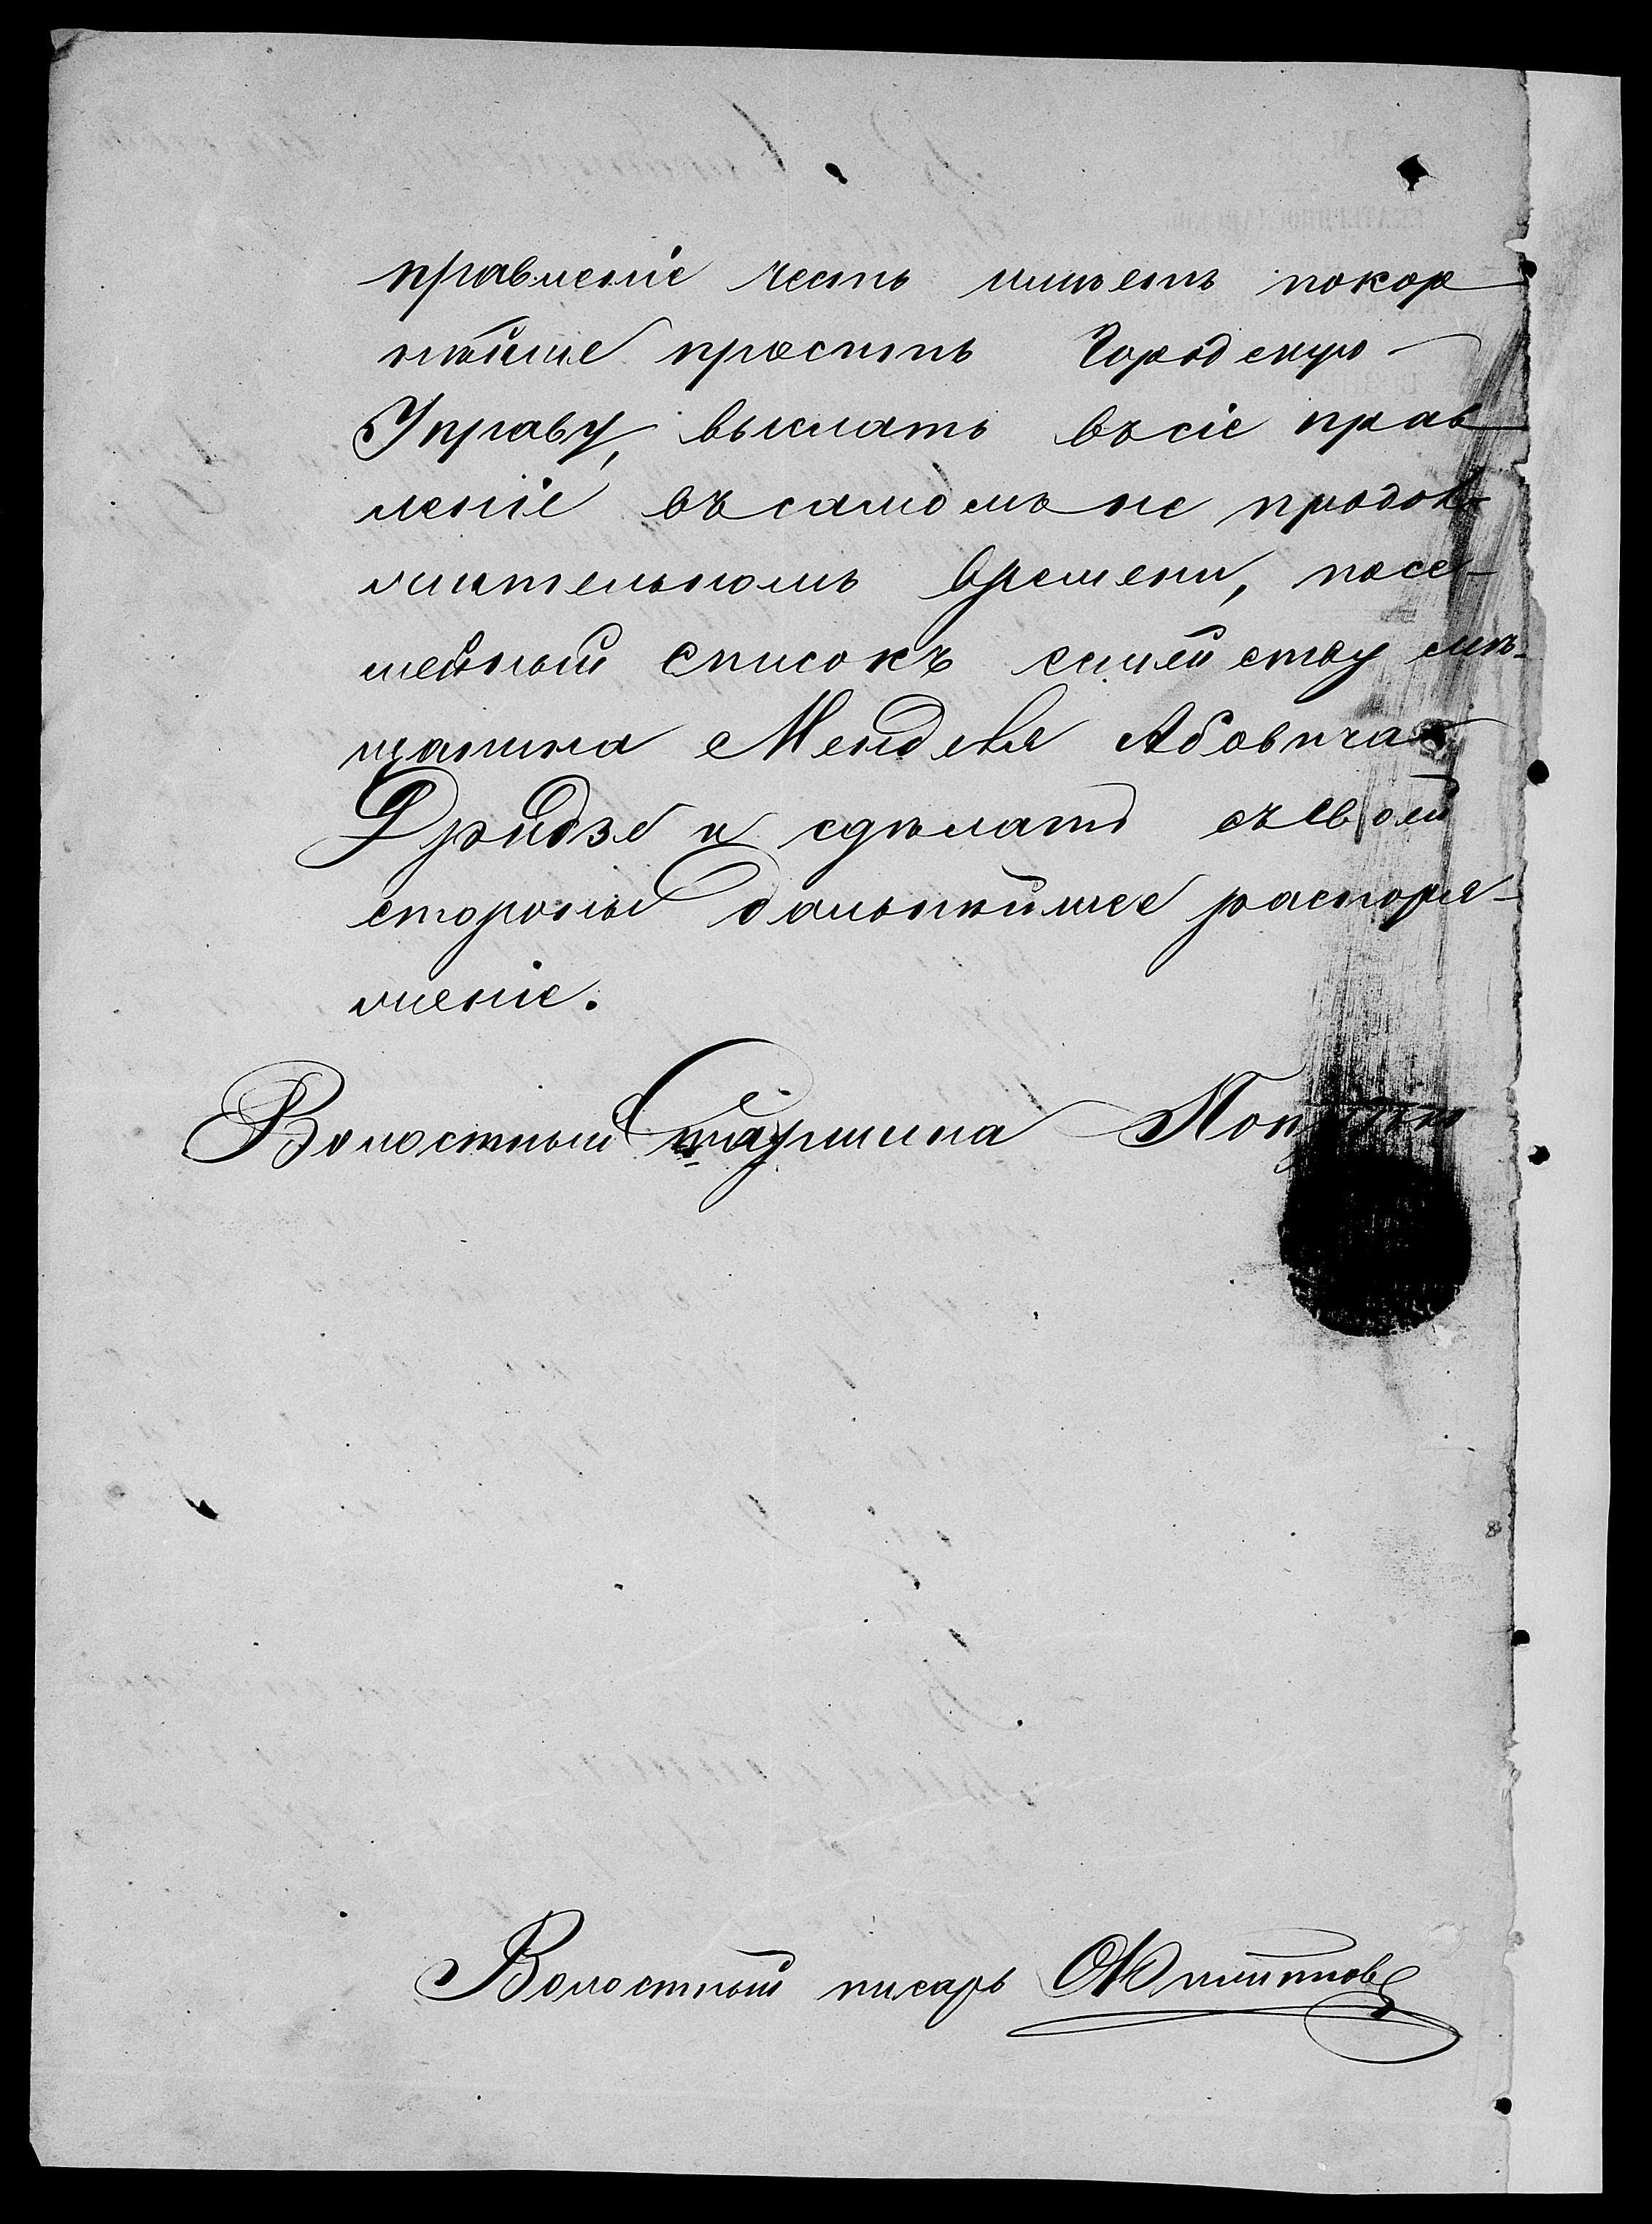 правленіе честь имѣетъ покор
нѣйше просить Городскую
Управу, выслать въ сіе прав
леніе въ самомъ не продол-
жительномъ времени, посе-
мейный списокъ семейству мѣ-
щанина Менделя Абовича
Дридзе и сдѣлать съ своей
стороны дальнѣйшее распоря-
женіе.
Волостный Старшина
Волостный писарь